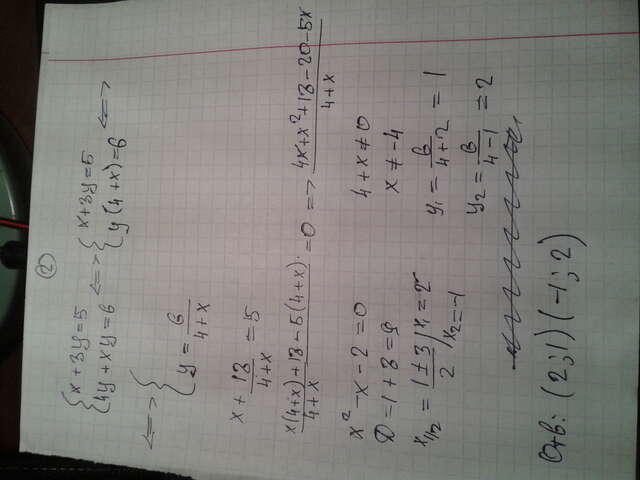 2
{ x + 3y = 5
4y + xy = 6 <=> { x + 3y = 5
y (4 + x) = 6 <=>
<=> { y = 6 / (4 + x)
x + 18 / (4 + x) = 5
(x(4+x) + 18 - 5(4+x)) / (4 + x) = 0 => (4x + x² + 18 - 20 - 5x) / (4 + x)
x² - x - 2 = 0
4 + x ≠ 0
D = 1 + 8 = 9
x ≠ -4
x1/2 = (1 ± 3) / 2 / x1 = 2
x2 = -1
y1 = 6 / (4 + 2) = 1
y2 = 6 / (4 - 1) = 2
Отв: (2;1) (-1;2)